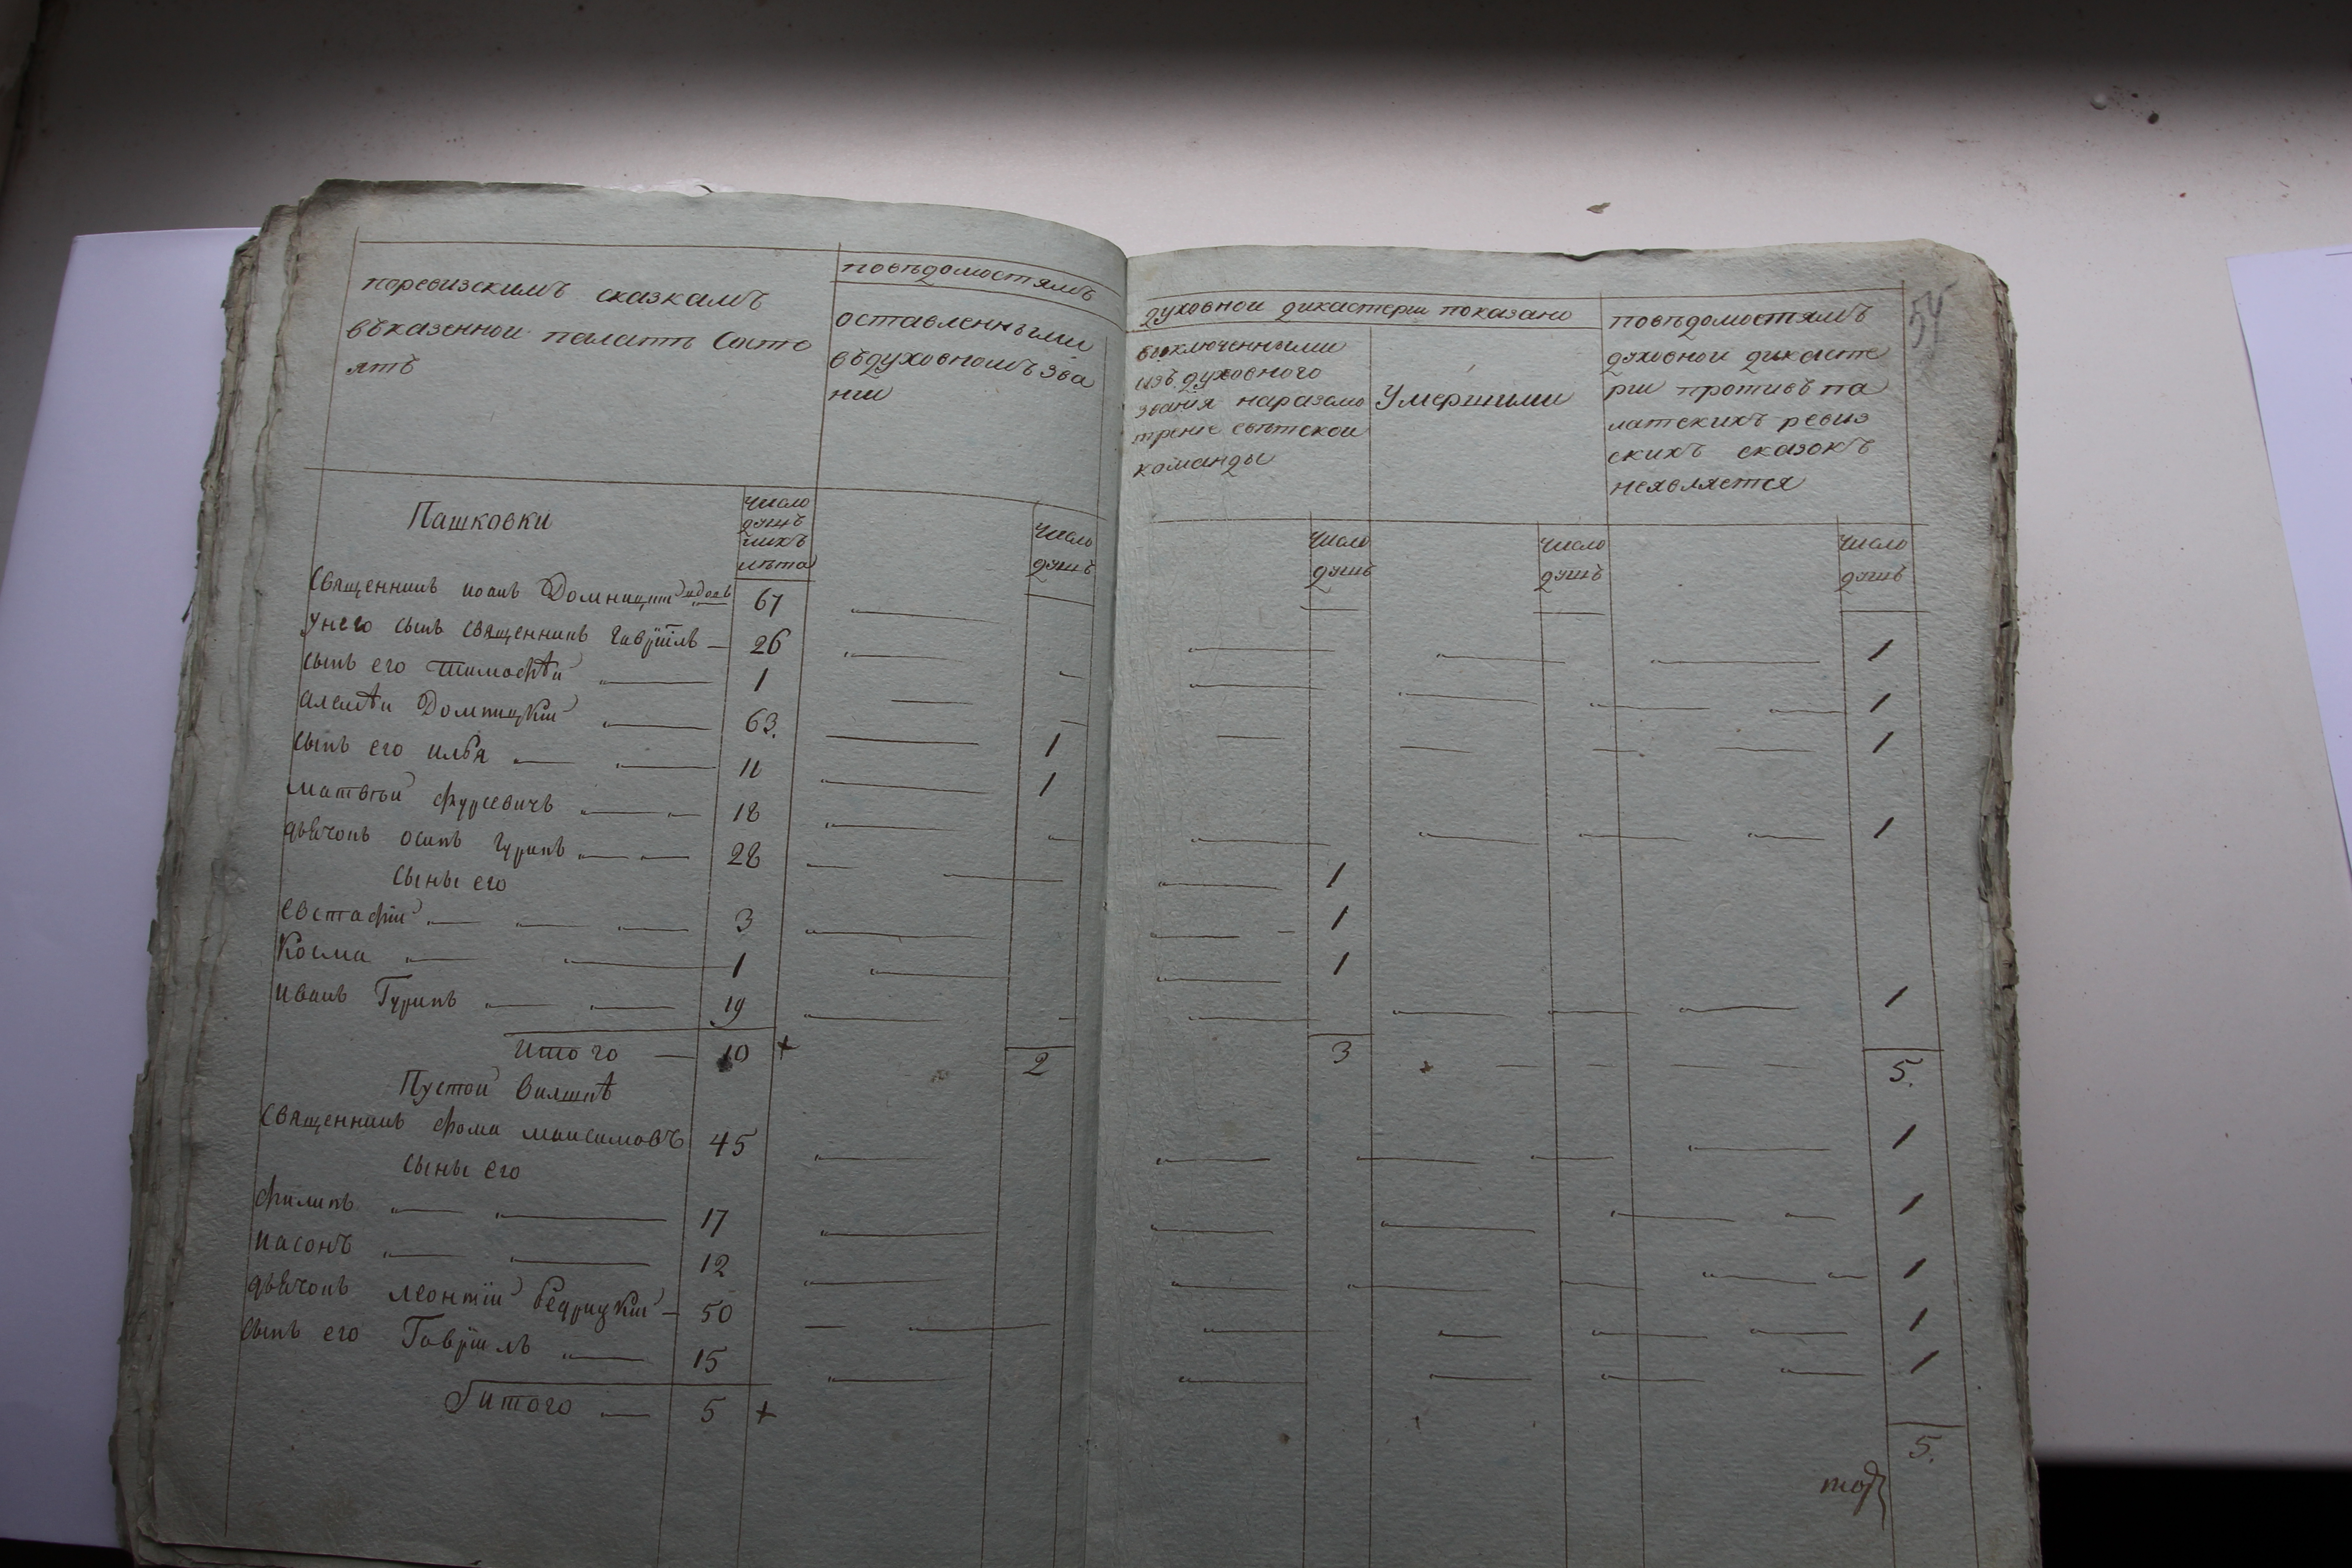 поревизскимъ сказкамъ
въказенной палатѣ Состо
ятъ
повѣдомостямъ
оставленными
въдуховномъ зва
нии
духовной дикастерии показано
выключенными
изъ духовного
звания наразсмо
трение свѣтской
команды
Умершими
повѣдомостямъ
духовной дикасте
рии противъ па
латскихъ ревиз
скихъ сказокъ
неявляется
54
Пашковки
число
душъ
ихъ
лѣта
число
душъ
число
душъ
число
душъ
число
душъ
Священникъ иоанъ 67
Унего сынъ священникъ Гавріилъ — 26 1
сынъ его тимофѣй 1 1
алексѣй Домницкій 63. 1 1
сынъ его илья 11 1
матвѣй фурсевичъ 18 1
дьячокъ осипъ Гуринъ 28 1
сыны его
евстафій 3 1
Косма 1 1
иванъ Гуринъ 19 1
итого — 10 + 2 3 5.
Пустой
Священникъ фома максимовъ 45 1
сыны его
филипъ 17 1
иасонъ 12 1
дьячокъ леонтій бедрицкій — 50 1
сынъ его Гавріилъ 15 1
итого — 5 + 5.